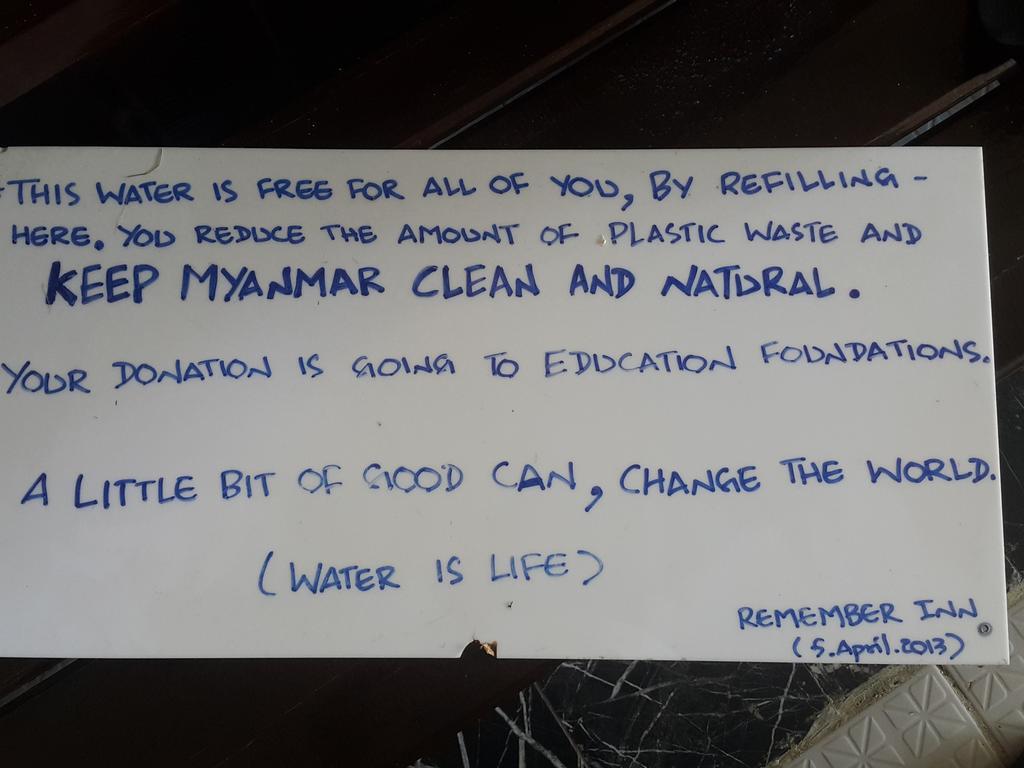 THIS WATER IS FREE FOR ALL OF YOU, BY REFILLING -
HERE. YOU REDUCE THE AMOUNT OF PLASTIC WASTE AND
KEEP MYANMAR CLEAN AND NATURAL.
YOUR DONATION IS GOING TO EDUCATION FOUNDATIONS.
A LITTLE BIT OF GOOD CAN, CHANGE THE WORLD.
(WATER IS LIFE)
REMEMBER INN
(5.April.2013)